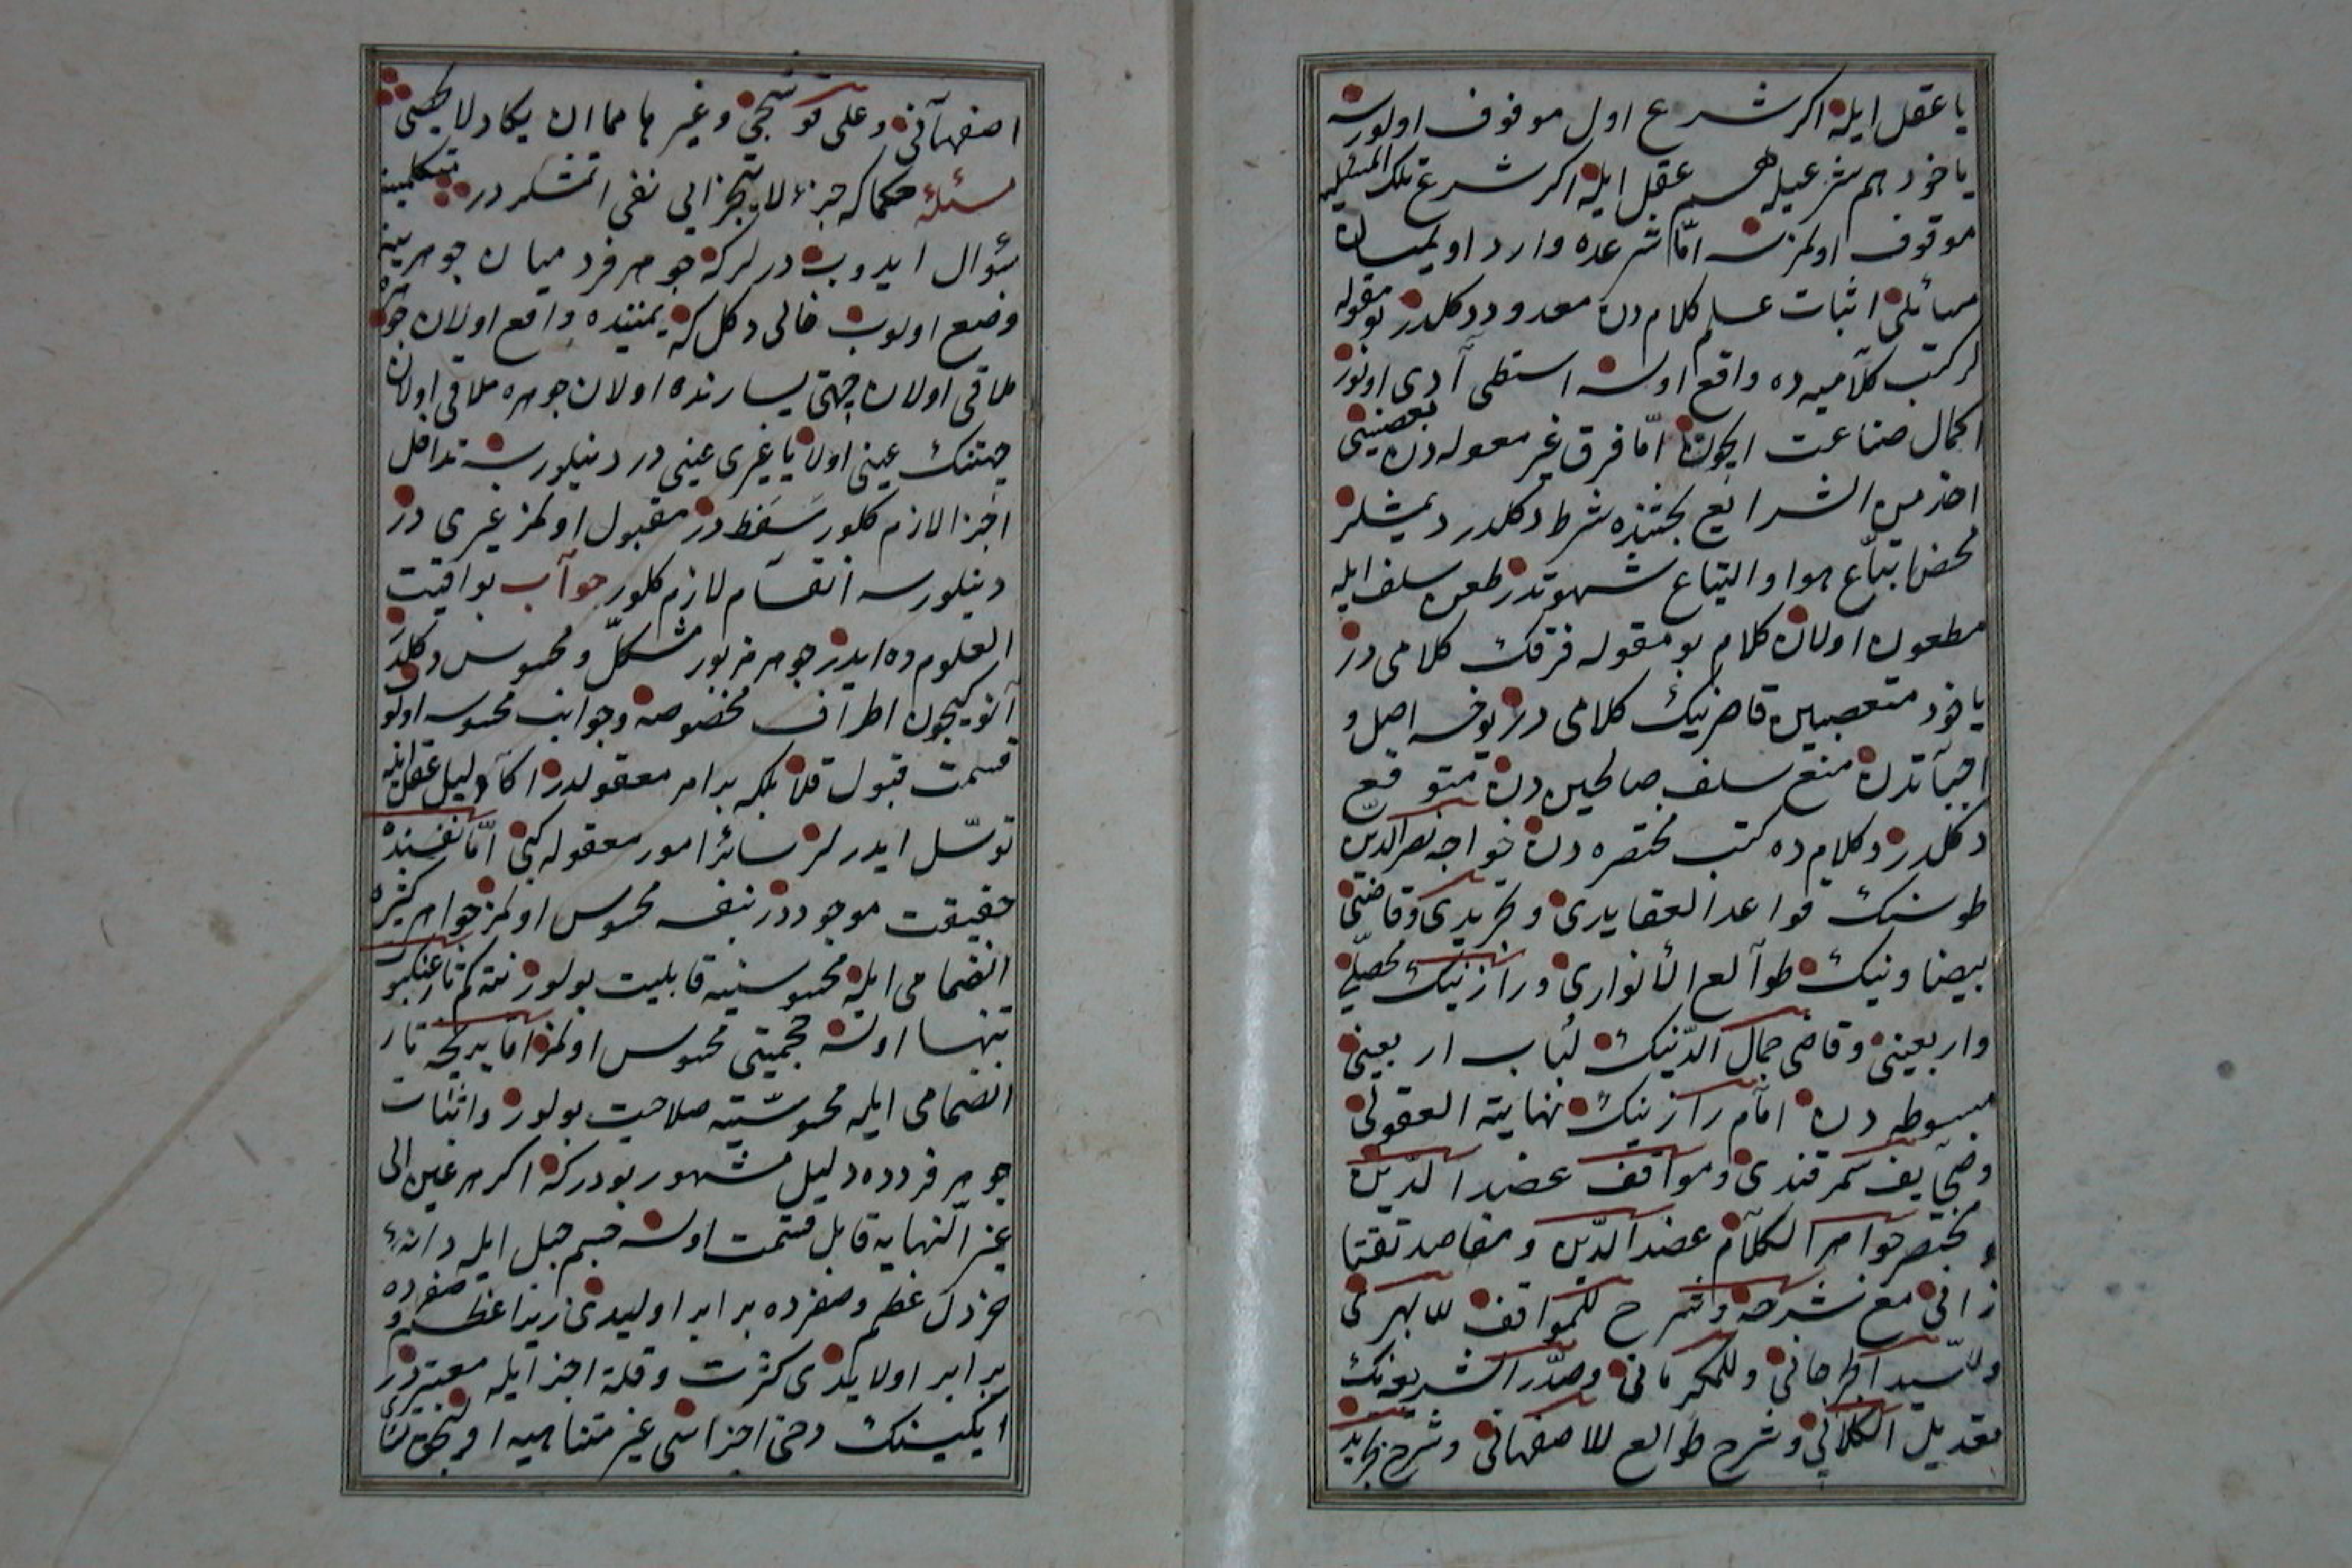 یا عقل ایله اکر شرع اول موقوف اولورسه
یاخود هم شرعیله هم عقل ایله اکر شرع تلک المسئلیه
موقوف اولمزسه امّا شرعده وارد اولمیان
مسائلی اثبات علم کلام دن معدود دکلدر بو مقوله
لر کتب کلامیه ده واقع اولسه استطرآدی اولور
اکمال صناعت ایچون امّا فرق غیر معوله دن بعضیسی
اخذ من الشرایع بحثنده شرط دکلدر دیمشلر
محض اتبّاع هوا و التیاع شهوتدر طعن سلف ایله
مطعون اولان کلام بو مقوله فرقک کلامی در
یاخود متعصبین قاصرنیک کلامی در یوخسه اصل و
اجبآتدن منع سلف صالحین دن متوقع
دکلدر و کلام ده کتب مختصره دن خواجه نصرالدین
طوسنک قواعد العقایدی و تجریدی وقاضی
بیضاونیک طوآلع الأنواری و رازنیک محصلی
واربعینی وقاضی جمال الدّینک لباب اربعینی
مبسوطه دن امآم رازینک نهایة العقولی
وصحایف سمرقندی و مواقف عضد الدّین
و مختصر جواهر الکلآم عضد الدّین و مقاصد تفتا
زانی مع شرحه و شرح للمواقف للابهری
وللسّید الجرجانی وللکرمانی وصدّر الشریعه نک
تعدیل الکلامی و شرح طوالع للاصفهانی و شرح تجرید
اصفهآنی وعلی قوشجی وغیرها مما ان یکاد لا یحصی
مسئله حکما که جزء لا یتجزایی نفی اتمشلر در متکلمینه
سؤال ایدوب درلر که جوهر فرد میان جوهرینه
وضع اولوب خالی دکل که یمیننده واقع اولان جوهره
ملاقی اولان جهتی یسارنده اولان جوهره ملاقی اولان
جهتنک عینی اولا یا غیری عینی در دینلورسه تداخل
اجزا لازم کلور سَفَط در مقبول اولمز غیری در
دینلورسه انقسآم لازم کلور جوآب یواقیت
العلوم ده ایدر جوهر مزبور مشکلّ و محسوس دکلدر
آنو کیچون اطرآف مخصوصه وجوانب محسوسه اولو
قسمت قبول قلا بلکه بر امر معقولدر اکآ دلیل عقل ایله
توسّل ایدرلر سائر امور معقوله کبی امّا نفسنده
حقیقت موجوددر بنفسه محسوس اولمز جواهر کثیره
انضمامی ایله محسوسیته قابلیت بولور نته کم تار عنکبو
تنها اولسه حجمیتی محسوس اولمز امّا بر نجه تار
انضمامی ایله محسوسّیته صلاحیت بولور واثبات
جوهر فردده دلیل مشهور بودر که اکر هر عین الی
غیر النهایه قابل قسمت اولسه جسم جبل ایله دانهٔ
خردل عظم وصغرده برابر اولیدی زیرا عظم و صغرده
برابر اولا یکدی کثرت وقلة اجزا ایله معتبردر
ایکیسنک دخی اجزاسی غیر متناهیه